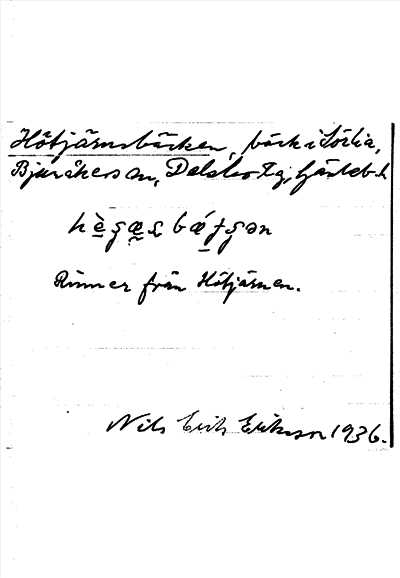 Hötjärnsbäcken, bäck i Sörlia,
Bjuråkers sn, Delsbo tg, Gävleb. l.
Rinner från Hötjärnen.
Nils Erik Erikson 1936.